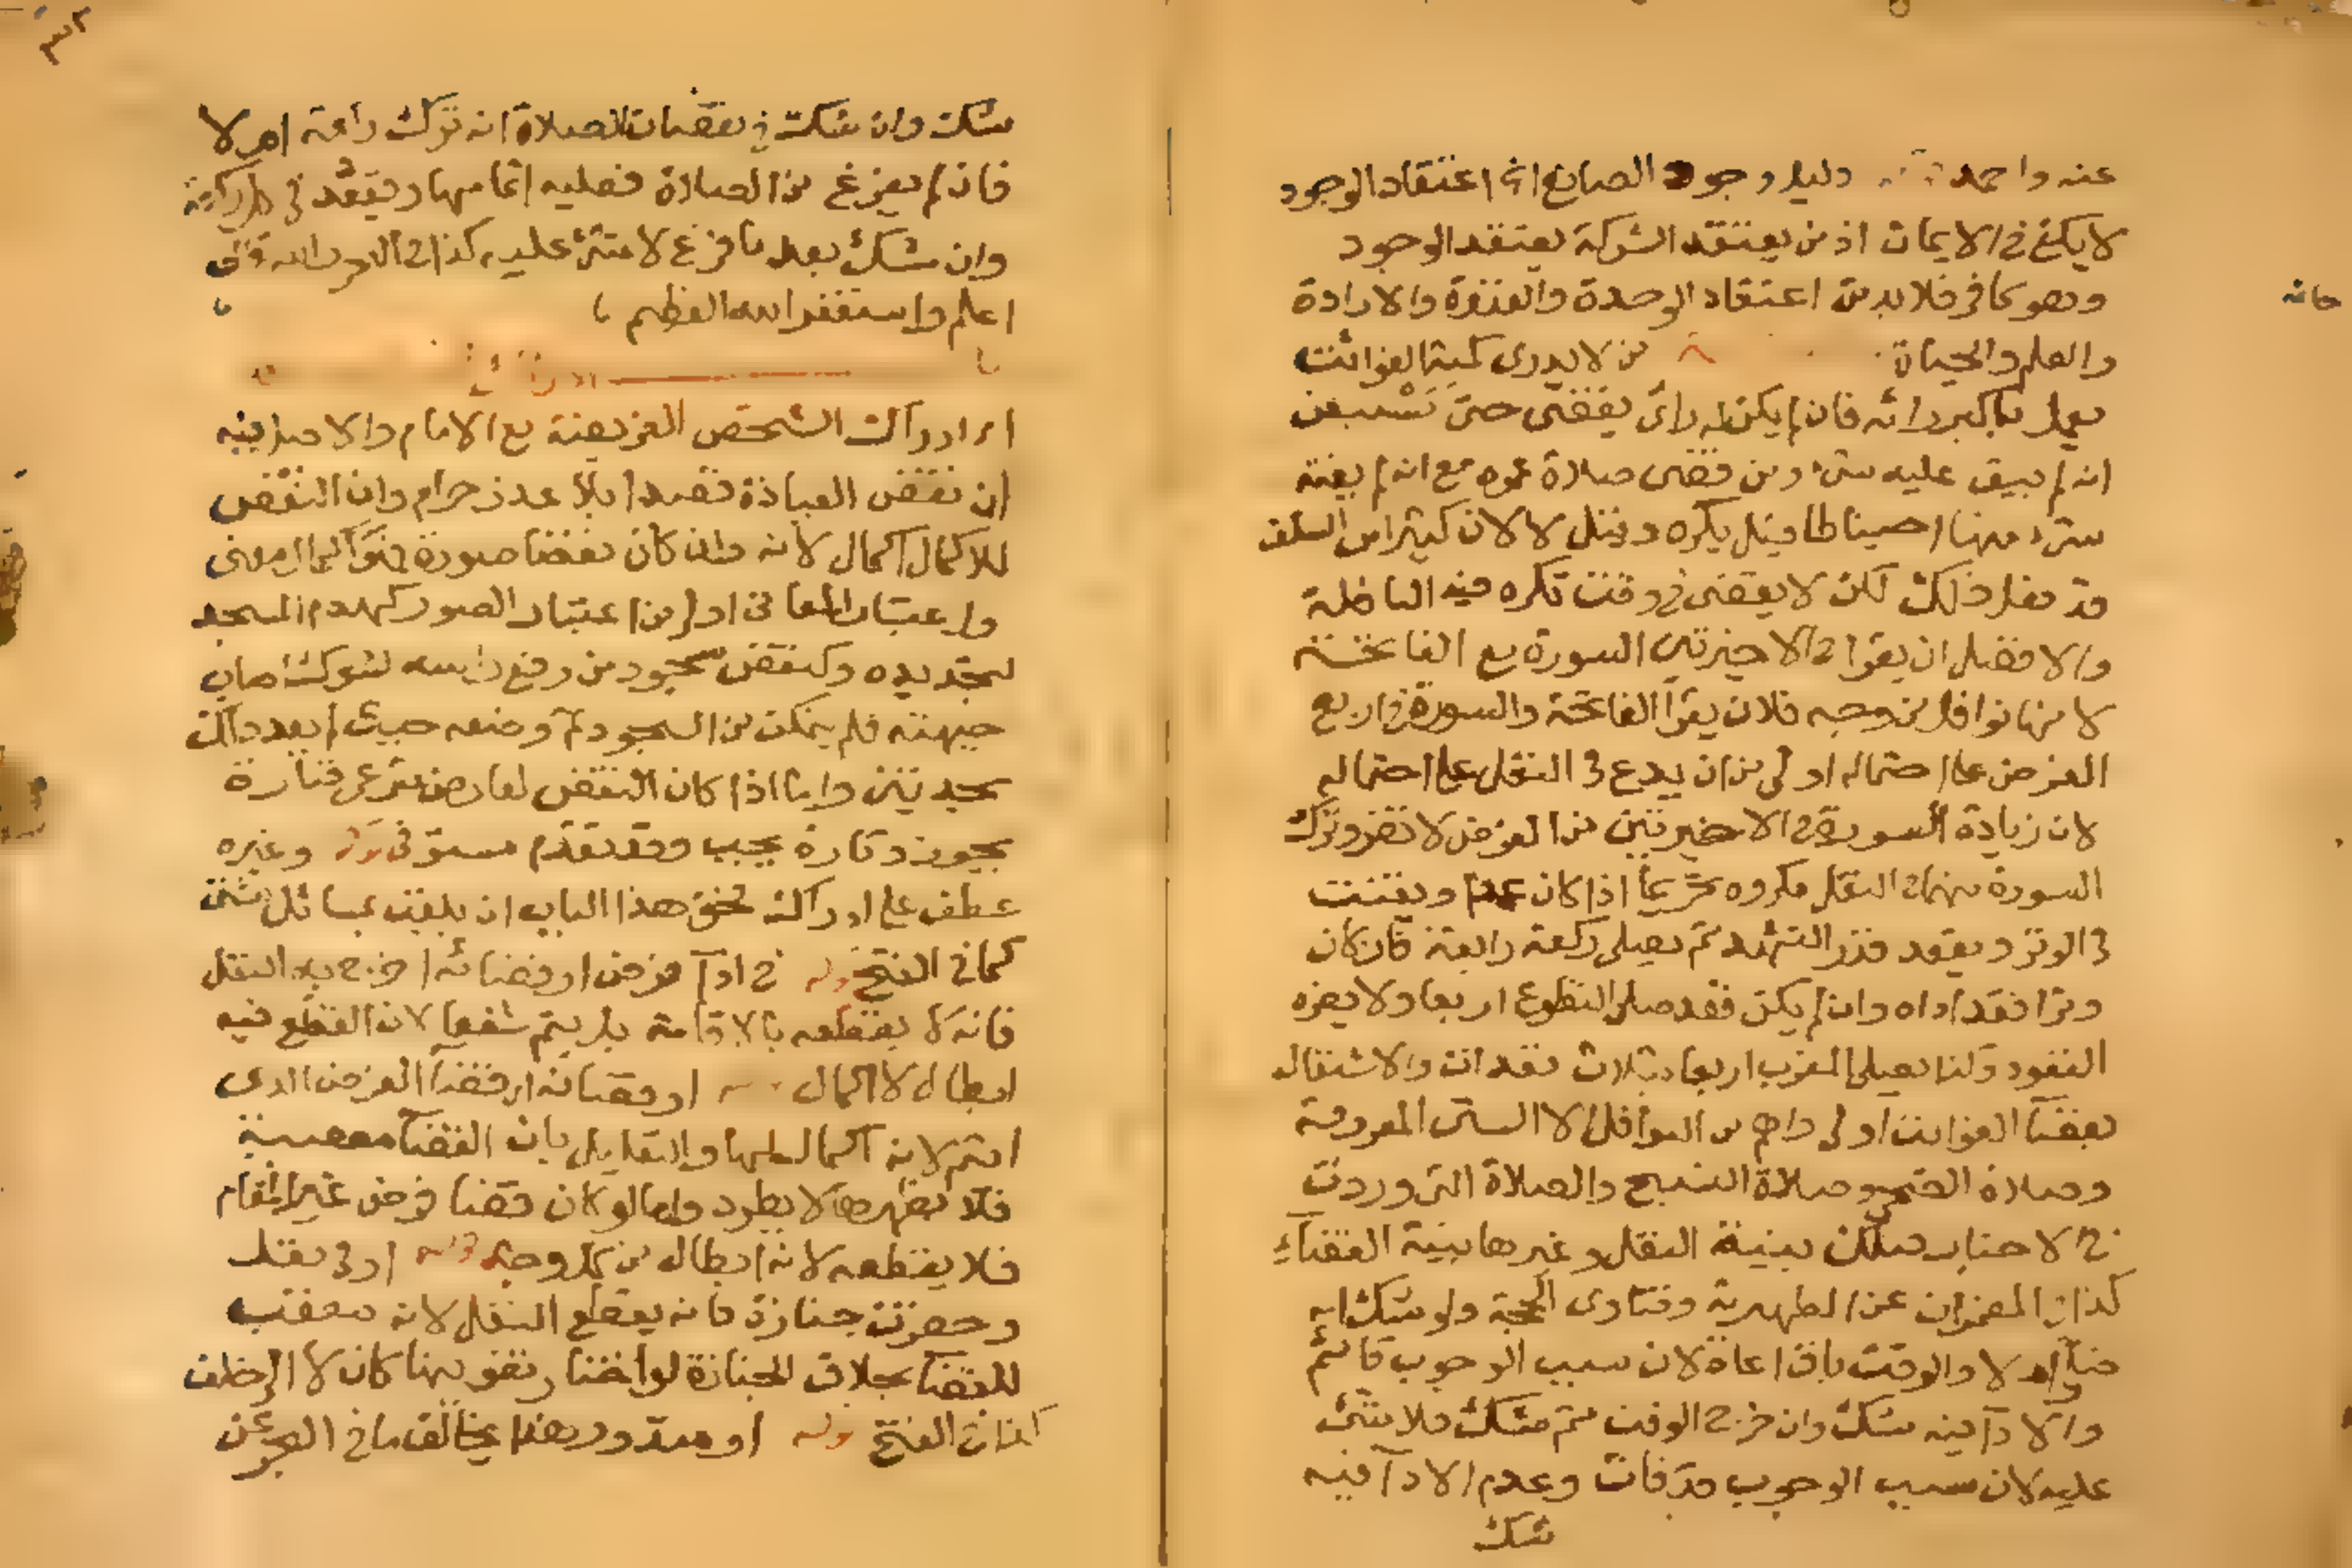 عنه واحمد دليل وجود الصانع اي اعتقاد الوجود
لا يكفي في الايمان اذ من يعتقد الشركة يعتقد الوجود
وهو كافر فلا بد من اعتقاد الوحدة والقدرة والارادة
والعلم والحياة من لا يدري كمية الفوائت
يعمل باكبر رائه فان لم يكن له راي يقضى حتى يتيقن
انه لم يبق عليه شيء ومن قضى صلاة عمره مع انه لم يفته
شيء منها احتياطا قيل يكره وقيل لا لان كثيرا من السلف
قد فعل ذلك لكن لا يقضى في وقت تكره فيه النافلة
والافضل ان يقرا في الاخيرتين السورة مع الفاتحة
لانها نوافل من وجه فلان يقرأ الفاتحة والسورة في اربع
الفرض على احتماله اولى من ان يدع في النفل على احتماله
لان زيادة السورة في الاخيرتين من الفرض لا تضر وترك
السورة منها في النفل مكروه تحريما اذا كان عمدا ويقنت
في الوتر ويقعد قدر التشهد ثم يصلي ركعة رابعة فان كان
وترا فقد اداه وان لم يكن فقد صلى التطوع اربعا ولا يضره
القعود وكذا يصلي المغرب اربعا بثلاث قعدات والاشتغال
بقضآ الفوايت اولى واهم من النوافل الا السنن المعروفة
وصلاة الضحى وصلاة التسبيح والصلاة التي وردت
في الاخبار فتلك بنية النفل وغيرها بنية القضآء
كذا في المضمرات عن الظهيرية وفتاوى الحجة ولو شك انه
صلاها ام لا والوقت باق اعاد لان سبب الوجوب قائم
والادآ فيه شك وان خرج الوقت ثم شك فلا شئ
عليه لان سبب الوجوب قد فات وعدم الادآ فيه
شك
شك وان شك في نقصان الصلاة انه ترك ركعة ام لا
فان لم يفرغ من الصلاة فعليه اتمامها ويقعد في كل ركعة
وان شك بعد ما فرغ لا شئ عليه كذا في البحر والله تعالى
اعلم واستغفر الله العظيم
اي ادراك الشخص الفريضة مع الامام والاصل فيه
ان نقض العبادة قصدا بلا عذر حرام وان النقض
للاكمال اكمال لانه وان كان نقضا صورة فهو اكمال معنى
واعتبار المعاني اولى من اعتبار الصور كهدم المسجد
لتجديده وكنقض سجود من رفع راسه لشوك اصاب
جبهته فلم يتمكن من السجود ثم وضعه حيث لم يعد ذلك
سجدتين واما اذا كان النقض لعارض شرعي فتارة
يجوز وتارة يجب وقد تقدم مستوفى قوله وغيره
عطف على ادراك فحق هذا الباب ان يلقب بمسائل شتى
كما في الفتح قوله في ادآ فرض او قضائه اخرج به النفل
فانه لا يقطعه بالاقامة بل يتم شفعا لان القطع فيه
ابطال لا اكمال او قضائه او قضآ الفرض الذي
اقيم لانه اكمال لها والتعليل بان القضآ معصية
فلا تظهر هنا لا يطرد واما لو كان قضا فرض غير المقام
فلا يقطعه لانه ابطال من كل وجه قوله او في نفل
وحضرت جنازة فانه يقطع النفل لانه معقب
للقضآ بخلاف الجنازة لو اخذنا بتفويتها كان لا الى خلف
كذا في الفتح قوله او منذور هذا يخالف ما في البحر عن